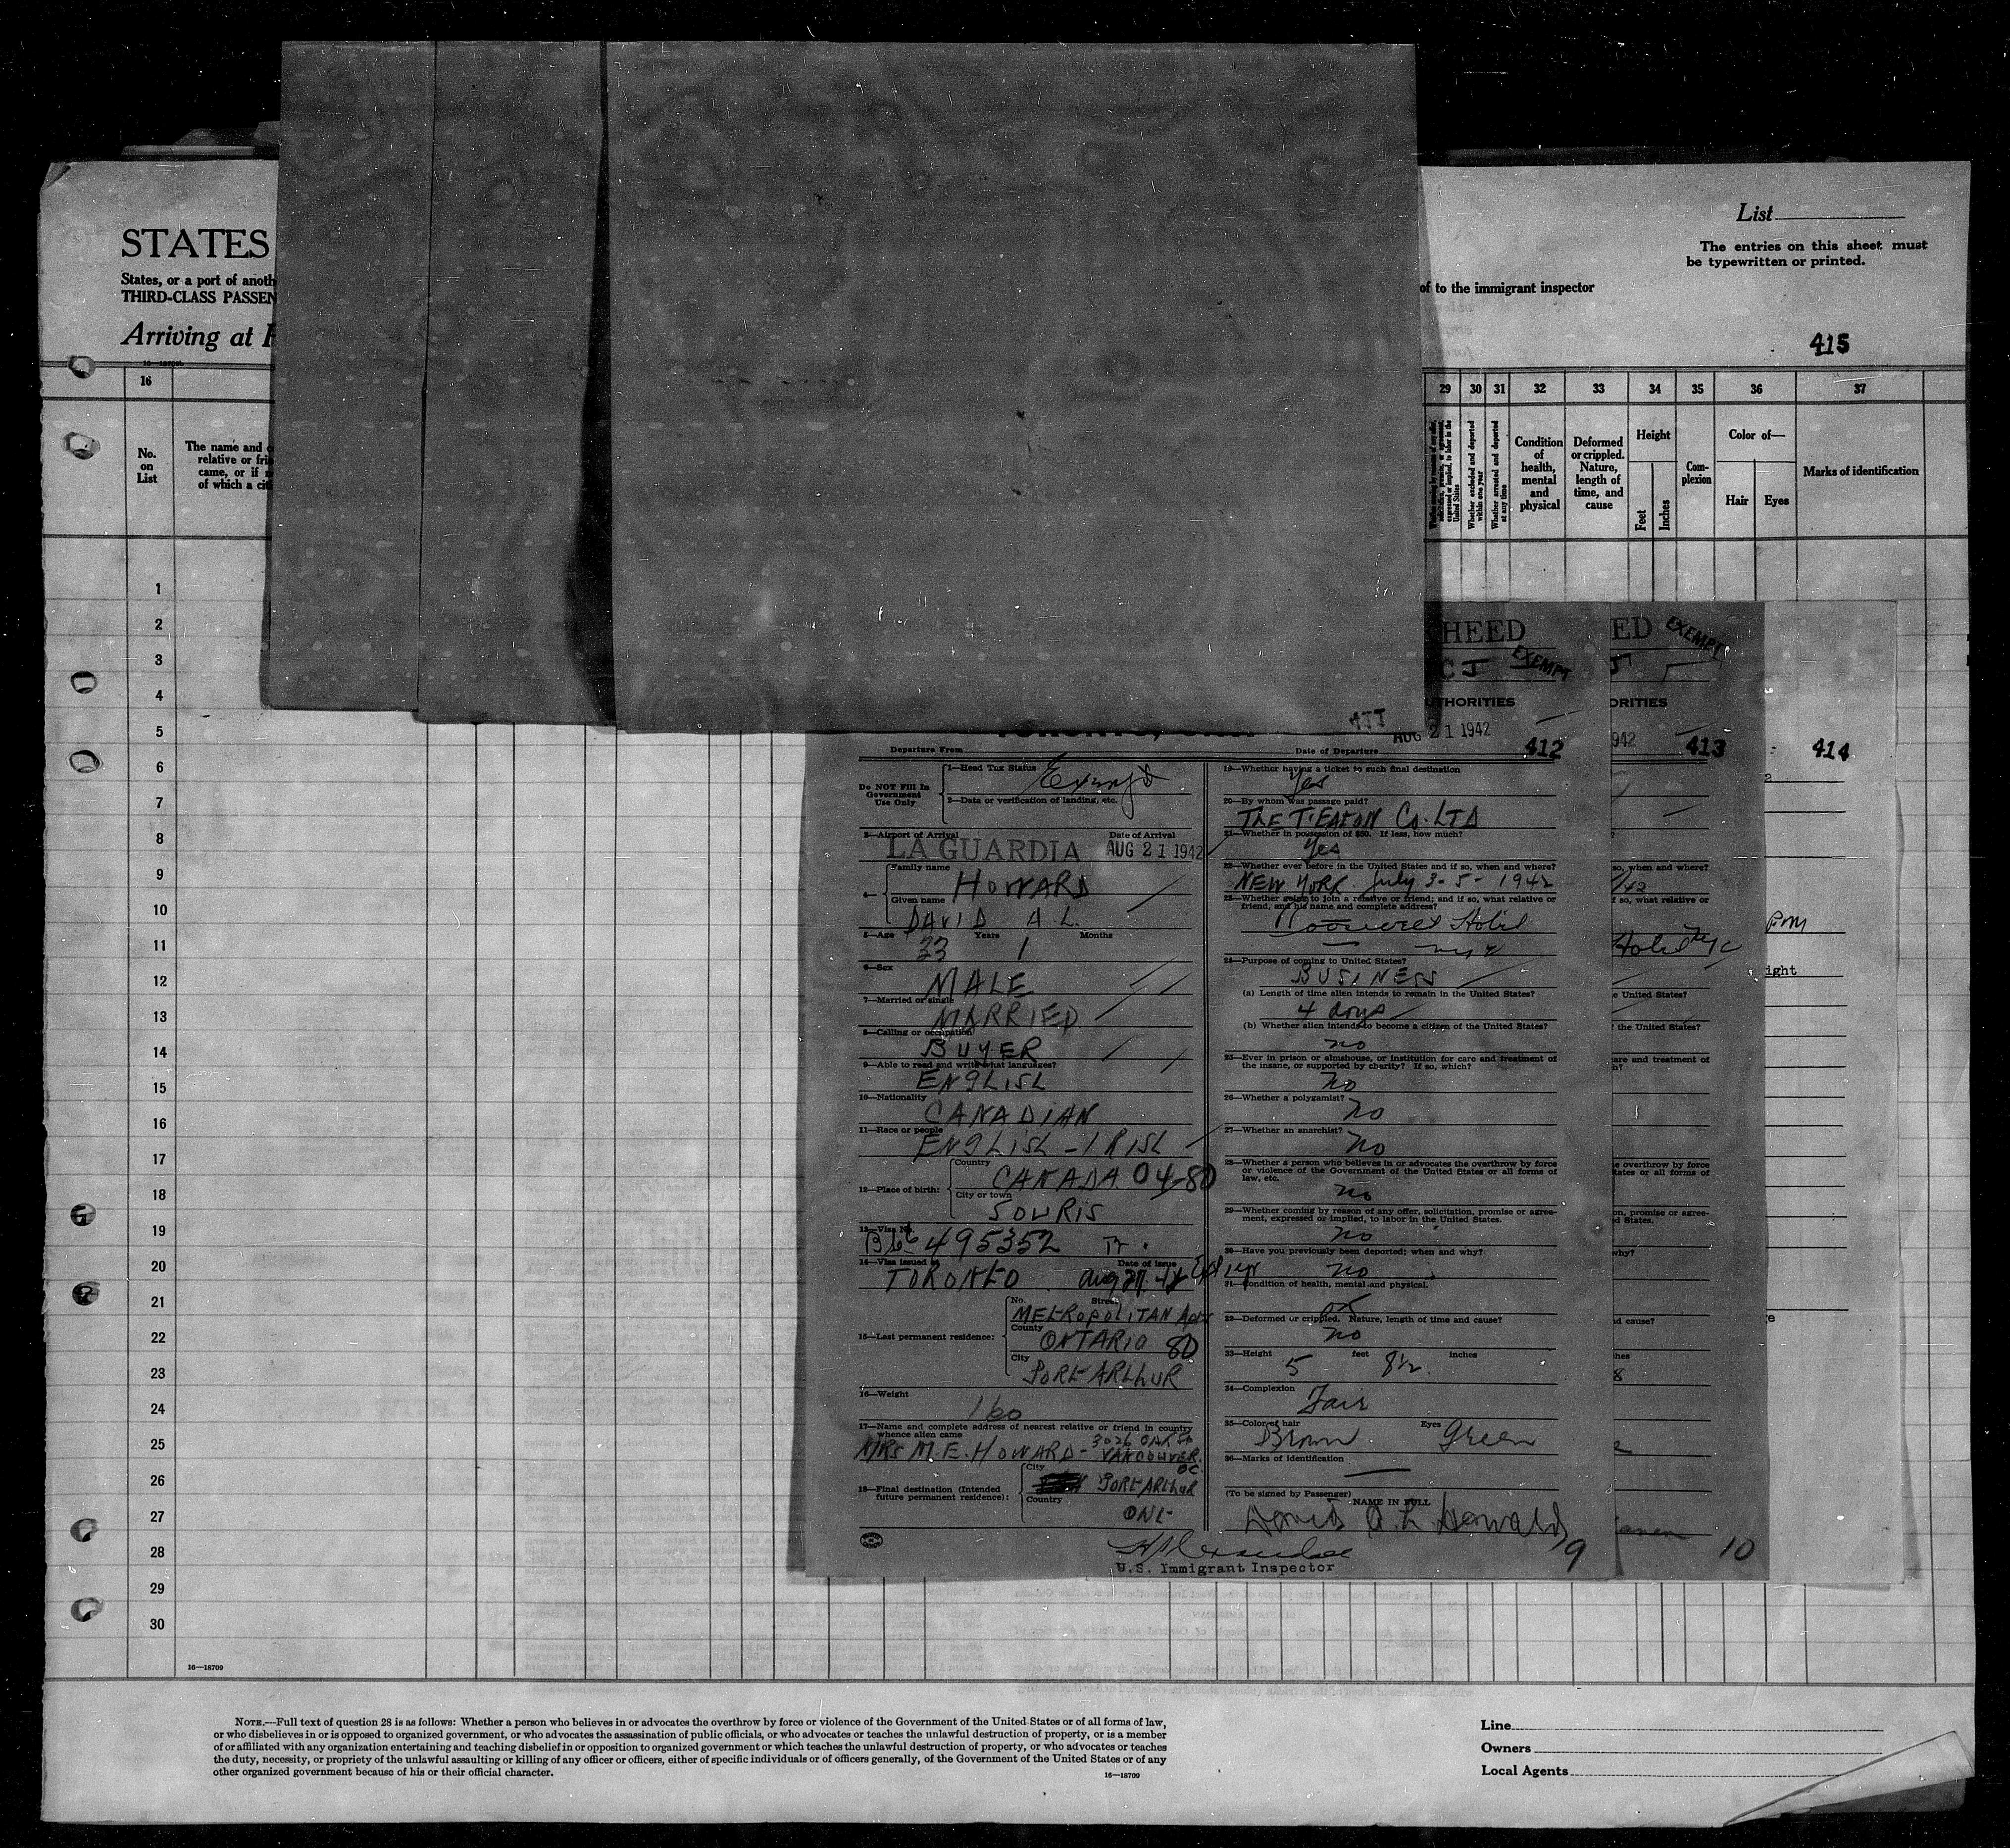 STATES
States, or a port of anoth
THIRD-CLASS PASSEN
Arriving at
List
The entries on this sheet must
be typewritten or printed.
of to the immigrant inspector
415
16
No.
on
List
The name and
relative or
came, or if
of which a
29 30 31 32 33 34 35 36 37
Whether excluded and deported within one year
Whether arrested and deported at any time
Condition of health, mental and physical
Deformed or crippled. Nature, length of time, and cause
Height
Feet
Inches
Com-plexion
Color of—
Hair
Eyes
Marks of identification
1
2
3
4
5
6
7
8
9
10
11
12
13
14
15
16
17
18
19
20
21
22
23
24
25
26
27
28
29
30
16—18709
HEED
EXEMPT
THORITIES
AUG 21 1942
412
Departure From
Date of Departure
Do NOT Fill In
Government
Use Only
1—Head Tax Status
2—Data or verification of landing, etc.
3—Airport of Arrival
Date of Arrival
LA GUARDIA AUG 21 1942
4—
Family name
HOWARD
Given name
DAVID A. L.
5—Age Years Months
33 1
6—Sex
MALE
7—Married or single
MARRIED
8—Calling or occupation
BUYER
9—Able to read and write what languages?
ENGLISh
10—Nationality
CANADIAN
11—Race or people
ENGLISh - IRISh
12—Place of birth:
Country
CANADA 04-80
City or town
SOURIS
13—Visa No.
495352
14—Visa issued at
Date of issue
TORONtO Aug 27. 42
15—Last permanent residence:
No. Street
MEtROPOLITAN Apts
County
ONTARIO 80
City
PORt ARthUR
16—Weight
160
17—Name and complete address of nearest relative or friend in country
whence alien came
MRS M. E. HOWARD - 3026 OAK St
VANCOUVER.
BC.
18—Final destination (Intended
future permanent residence):
City
PORt ARthUR
Country
ONt
19—Whether having a ticket to such final destination
Yes
20—By whom was passage paid?
THE T. EATON Co. LTD
21—Whether in possession of $50. If less, how much?
Yes
22—Whether ever before in the United States and if so, when and where?
NEW YORK July 3-5-1942
23—Whether going to join a relative or friend; and if so, what relative or
friend, and his name and complete address?
Hotel
24—Purpose of coming to United States?
BUSINESS
(a) Length of time alien intends to remain in the United States?
4 days
(b) Whether alien intends to become a citizen of the United States?
no
25—Ever in prison or almshouse, or institution for care and treatment of
the insane, or supported by charity? If so, which?
no
26—Whether a polygamist?
no
27—Whether an anarchist?
no
28—Whether a person who believes in or advocates the overthrow by force
or violence of the Government of the United States or all forms of
law, etc.
no
29—Whether coming by reason of any offer, solicitation, promise or agree-
ment, expressed or implied, to labor in the United States.
no
30—Have you previously been deported; when and why?
no
31—Condition of health, mental and physical.
ok
32—Deformed or crippled. Nature, length of time and cause?
no
33—Height feet inches
5 8½
34—Complexion
Fair
35—Color of hair Eyes
Brown Green
36—Marks of identification
(To be signed by Passenger)
NAME IN FULL
David A. L. Howard
U.S. Immigrant Inspector
9
ED
EXEMPT
ORITIES
942
413
so, when and where?
f so, what relative or
Hotel NYC
e United States?
the United States?
are and treatment of
h?
e overthrow by force
tates or all forms of
on, promise or agree-
d States.
why?
nd cause?
hes
8
10
414
ight
NOTE.—Full text of question 28 is as follows: Whether a person who believes in or advocates the overthrow by force or violence of the Government of the United States or of all forms of law,
or who disbelieves in or is opposed to organized government, or who advocates the assassination of public officials, or who advocates or teaches the unlawful destruction of property, or is a member
of or affiliated with any organization entertaining and teaching disbelief in or opposition to organized government or which teaches the unlawful destruction of property, or who advocates or teaches
the duty, necessity, or propriety of the unlawful assaulting or killing of any officer or officers, either of specific individuals or of officers generally, of the Government of the United States or of any
other organized government because of his or their official character.
16—18709
Line
Owners
Local Agents